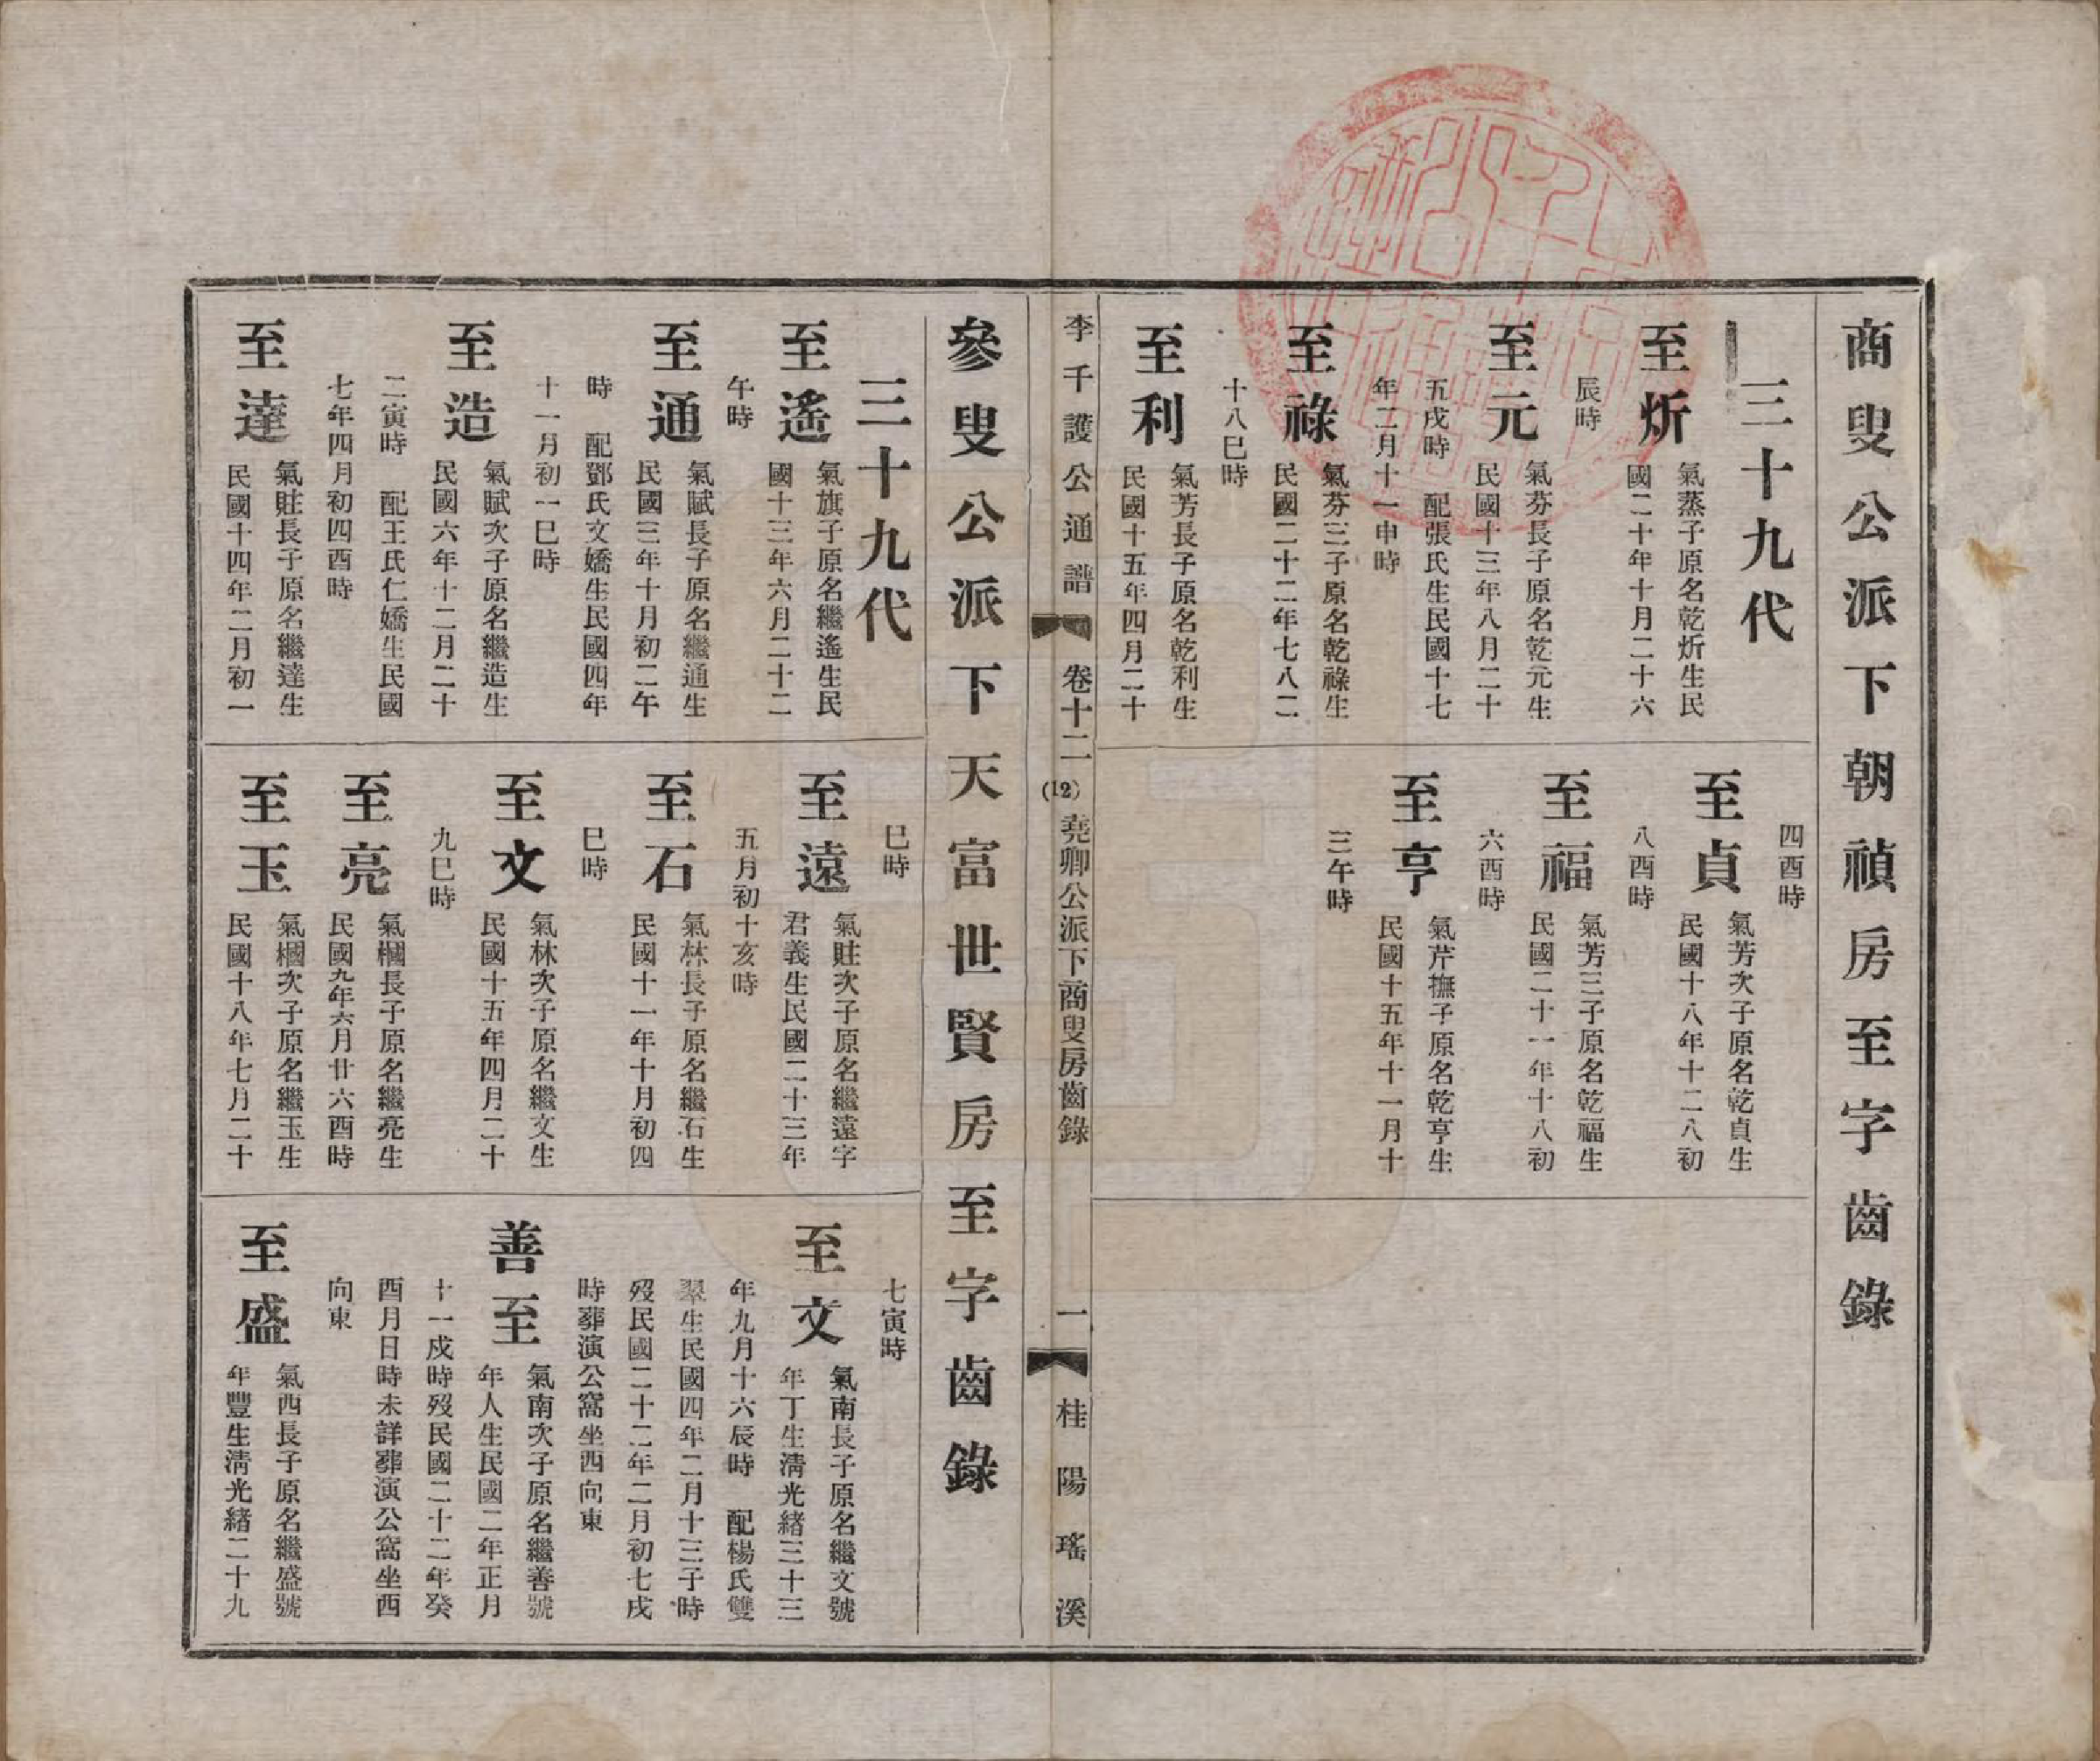 商叟公派下朝禎房至字齒錄
三十九代
至炘
氣蒸子原名乾炘生民
國二十年十月二十六
辰時
至元
氣芬長子原名乾元生
民國十三年八月二十
五戌時　配張氏生民國十七
年二月十一申時
至祿
氣芬三子原名乾祿生
民國二十二年七八二
十八巳時
至利
氣芳長子原名乾利生
民國十五年四月二十
四酉時
至貞
氣芳次子原名乾貞生
民國十八年十二八初
八酉時
至福
氣芳三子原名乾福生
民國二十一年十八初
六酉時
至亨
氣芹撫子原名乾亨生
民國十五年十一月十
三午時
李千護公通譜　卷十二　(12)　堯卿公派下商叟房齒錄　一　桂陽瑤溪
參叟公派下天富世賢房至字齒錄
三十九代
至遙
氣旗子原名繼遙生民
國十三年六月二十二
午時
至通
氣賦長子原名繼通生
民國三年十月初二午
時　配鄧氏文嬌生民國四年
十一月初一巳時
至造
氣賦次子原名繼造生
民國六年十二月二十
二寅時　配王氏仁嬌生民國
七年四月初四酉時
至達
氣賍長子原名繼達生
民國十四年二月初一
巳時
至遠
氣賍次子原名繼遠字
君義生民國二十三年
五月初十亥時
至石
氣林長子原名繼石生
民國十一年十月初四
巳時
至文
氣林次子原名繼文生
民國十五年四月二十
九巳時
至亮
氣槶長子原名繼亮生
民國九年六月廿六酉時
至玉
氣槶次子原名繼玉生
民國十八年七月二十
七寅時
至文
氣南長子原名繼文號
年丁生淸光緒三十三
年九月十六辰時　配楊氏雙
翠生民國四年二月十三子時
歿民國二十二年二月初七戌
時葬演公窩坐西向東
善至
氣南次子原名繼善號
年人生民國二年正月
十一戌時歿民國二十二年癸
酉月日時未詳葬演公窩坐西
向東
至盛
氣西長子原名繼盛號
年豐生淸光緒二十九